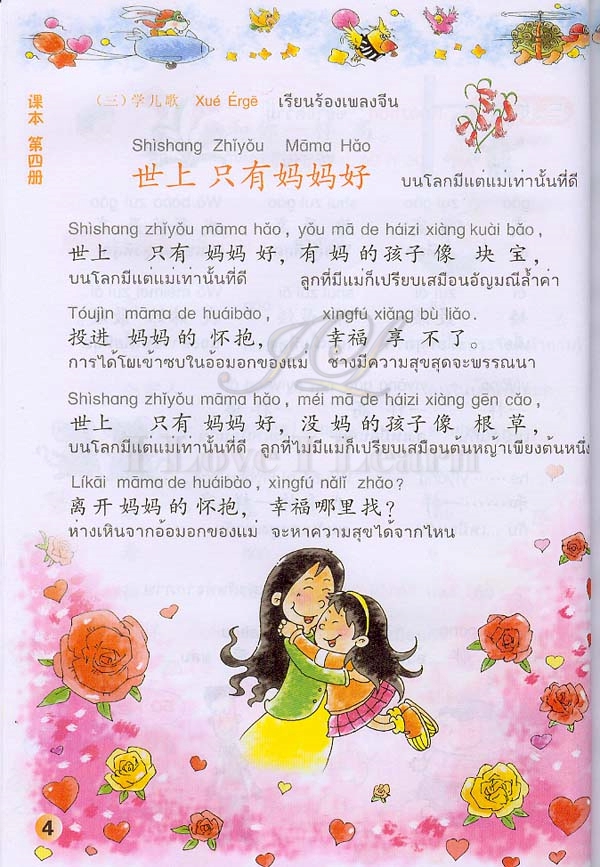 课本 第四册
（三）学儿歌 Xué Érgē เรียนร้องเพลงจีน
Shìshang Zhǐyǒu Māma Hǎo
世上 只有妈妈好 บนโลกมีแต่แม่เท่านั้นที่ดี
Shìshang zhǐyǒu māma hǎo, yǒu mā de háizi xiàng kuài bǎo,
世上 只有 妈妈 好, 有 妈 的 孩子 像 块 宝,
บนโลกมีแต่แม่เท่านั้นที่ดี ลูกที่มีแม่ก็เปรียบเสมือนอัญมณีล้ำค่า
Tóujìn māma de huáibào, xìngfú xiǎng bù liǎo.
投进 妈妈 的 怀抱, 幸福 享 不 了。
การได้โผเข้าซบในอ้อมอกของแม่ ช่างมีความสุขสุดจะพรรณนา
Shìshang zhǐyǒu māma hǎo, méi mā de háizi xiàng gēn cǎo,
世上 只有 妈妈 好, 没 妈 的 孩子 像 根 草,
บนโลกมีแต่แม่เท่านั้นที่ดี ลูกที่ไม่มีแม่ก็เปรียบเสมือนต้นหญ้าเพียงต้นหนึ่ง
Líkāi māma de huáibào, xìngfú nǎlǐ zhǎo?
离开 妈妈 的 怀抱, 幸福 哪里 找?
ห่างเหินจากอ้อมอกของแม่ จะหาความสุขได้จากไหน
I Love I Learn
4